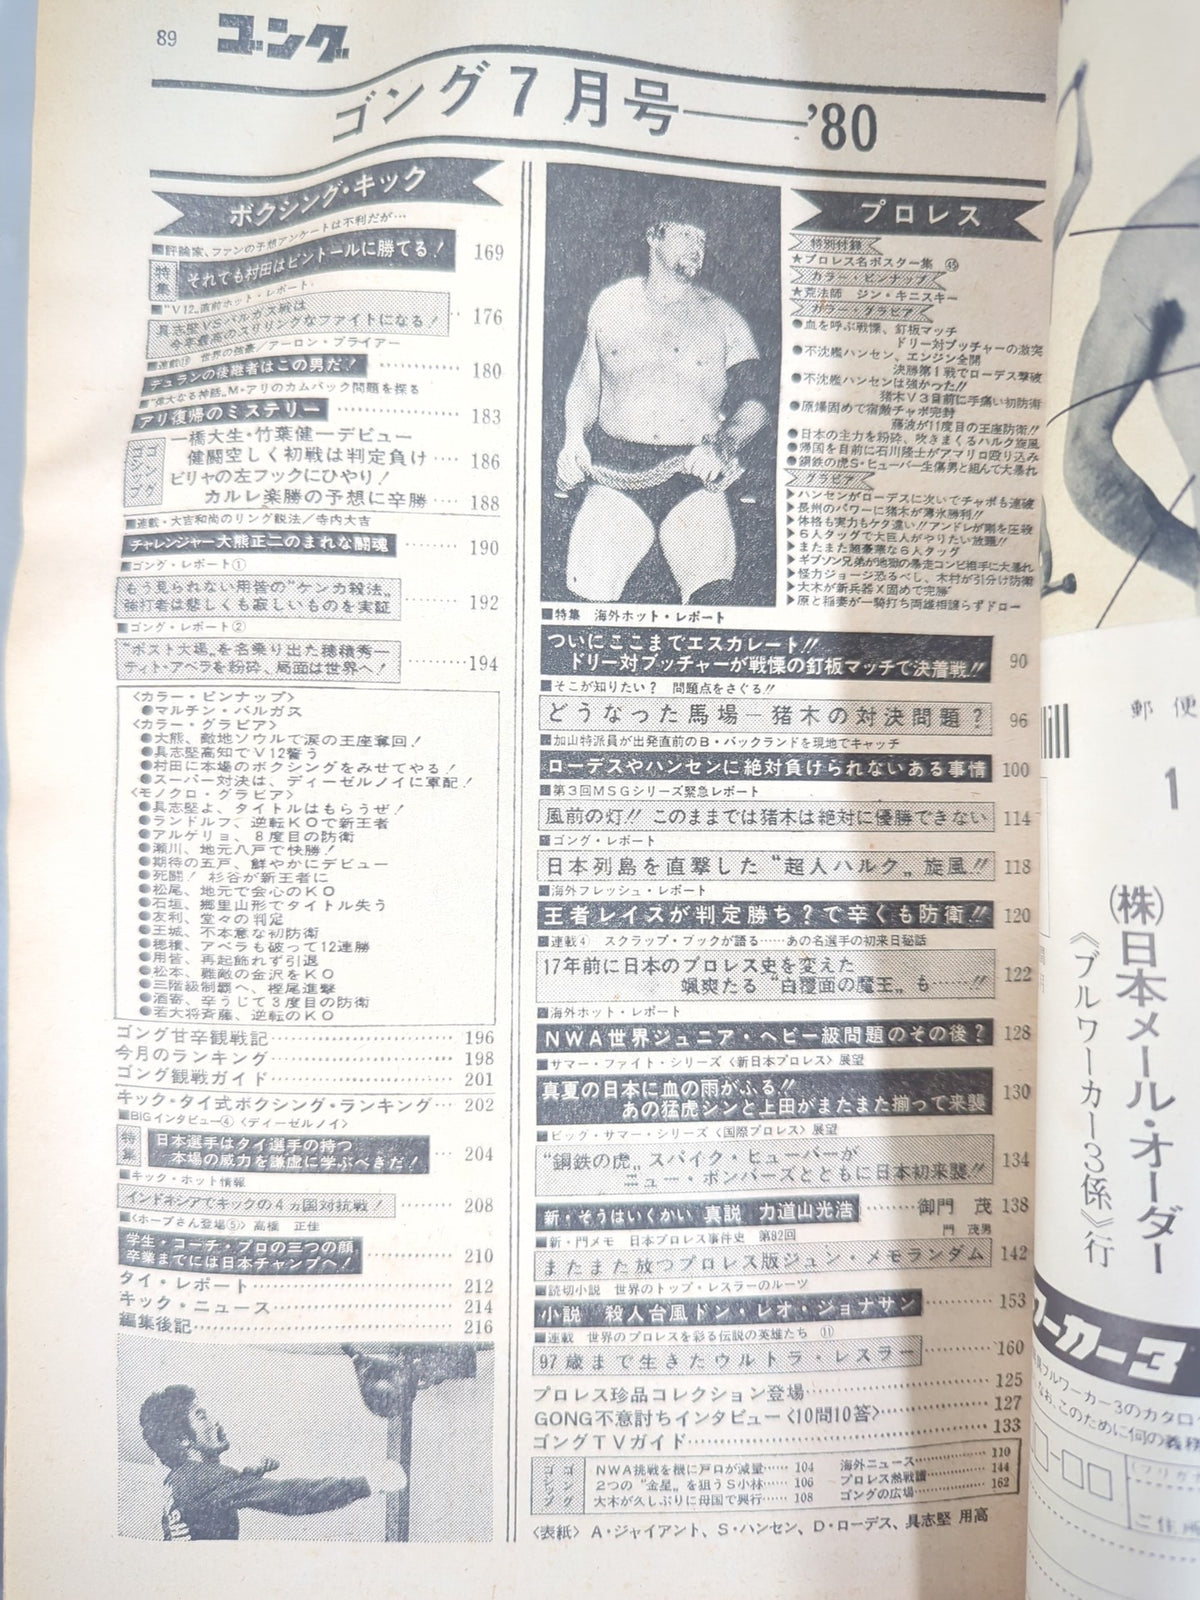 89
ゴング
ゴング7月号――'80
ボクシング・キック
■評論家、ファンの予想アンケートは不利だが…
特集
それても村田はピントールに勝てる! 169
■“V12„直前ホット・レポート
具志堅VSバルガス戦は
今年最高のスリリングなファイトになる! 176
■連載⑱ 世界の強豪/アーロン・プライアー
デュランの後継者はこの男だ! 180
■“偉大なる神話„M・アリのカムバック問題を探る
アリ復帰のミステリー 183
ゴングゴシップ
一橋大生・竹葉健一デビュー
健闘空しく初戦は判定負け… 186
ビリャの左フックにひやり!
カルレ楽勝の予想に辛勝… 188
■連載・大吉和尚のリング説法/寺内大吉
チャレンジャー大熊正二のまれな闘魂 190
■ゴング・レポート①
もう見られない用皆の“ケンカ殺法„
強打者は悲しくも寂しいものを実証 192
■ゴング・レポート②
“ポスト大場„を名乗り出た穂積秀一
ティト・アベラを粉砕、局面は世界へ! 194
〈カラー・ピンナップ〉
●マルチン・バルガス
〈カラー・グラビア〉
●大熊、敵地ソウルで涙の王座奪回!
●具志堅高知でV12誓う
●村田に本場のボクシングをみせてやる!
●スーパー対決は、ディーゼルノイに軍配!
〈モノクロ・グラビア〉
●具志堅よ、タイトルはもらうぜ!
●ランドルフ、逆転KOで新王者
●アルゲリョ、8度目の防衛
●瀬川、地元八戸で快勝!
●期待の五戸、鮮やかにデビュー
●死闘! 杉谷が新王者に
●松尾、地元で会心のKO
●石垣、郷里山形でタイトル失う
●友利、堂々の判定
●王城、不本意な初防衛
●穂積、アベラも破って12連勝
●用皆、再起飾れず引退
●松本、難敵の金沢をKO
●三階級制覇へ、樫尾進撃
●酒寄、辛うじて3度目の防衛
●若大将斉藤、逆転のKO
ゴング甘辛観戦記 196
今月のランキング 198
ゴング観戦ガイド 201
キック・タイ式ボクシング・ランキング… 202
■BIGインタビュー④〈ディーゼルノイ〉
特集
日本選手はタイ選手の持つ
本場の威力を謙虚に学ぶべきだ! 204
■キック・ホット情報
インドネシアでキックの4ヵ国対抗戦! 208
■〈ホープさん登場⑤〉高橋 正佳
学生・コーチ・プロの三つの顔
卒業までには日本チャンプへ! 210
タイ・レポート 212
キック・ニュース 214
編集後記 216
プロレス
特別付録
★プロレス名ポスター集 ㊺
カラー・ピンナップ
★荒法師 ジン・キニスキー
カラー・グラビア
●血を呼ぶ戦慄、釘板マッチ
ドリー対ブッチャーの激突
●不沈艦ハンセン、エンジン全開
決勝第1戦でローデス撃破
●不沈艦ハンセンは強かった!!
猪木V3目前に手痛い初防衛
●原爆固めで宿敵チャボ完封
藤波が11度目の王座防衛!!
●日本の主力を粉砕、吹きまくるハルク旋風
●帰国を目前に石川隆士がアマリロ殴り込み
●鋼鉄の虎S・ヒューバー生傷男と組んで大暴れ
グラビア
▶ハンセンがローデスに次いでチャボも連破
▶長州のパワーに猪木が薄氷勝利!!
▶体格も実力もケタ違い!!アンドレが剛を圧殺
▶6人タッグで大巨人がやりたい放題!!
▶またまた超豪華な6人タッグ
▶ギブソン兄弟が地獄の暴走コンビ相手に大暴れ
▶怪力ジョージ恐るべし、木村が引分け防衛
▶大木が新兵器X固めで完勝
▶原と稲妻が一騎打ち両雄相譲らずドロー
■特集 海外ホット・レポート
ついにここまでエスカレート!!
ドリー対ブッチャーが戦慄の釘板マッチで決着戦!! 90
■そこが知りたい? 問題点をさぐる!!
どうなった馬場―猪木の対決問題? 96
■加山特派員が出発直前のB・バックランドを現地でキャッチ
ローデスやハンセンに絶対負けられないある事情 100
■第3回MSGシリーズ緊急レポート
風前の灯!! このままでは猪木は絶対に優勝できない 114
■ゴング・レポート
日本列島を直撃した“超人ハルク„旋風!! 118
■海外フレッシュ・レポート
王者レイスが判定勝ち?で辛くも防衛!! 120
■連載④ スクラップ・ブックが語る……あの名選手の初来日秘話
17年前に日本のプロレス史を変えた
颯爽たる“白覆面の魔王„も……!! 122
■海外ホット・レポート
NWA世界ジュニア・ヘビー級問題のその後? 128
■サマー・ファイト・シリーズ〈新日本プロレス〉展望
真夏の日本に血の雨がふる!!
あの猛虎シンと上田がまたまた揃って来襲 130
■ビック・サマー・シリーズ〈国際プロレス〉展望
“鋼鉄の虎„スパイク・ヒューバーが
ニュー・ボンバーズとともに日本初来襲!! 134
新・そうはいくかい 真説 力道山光浩……御門 茂 138
■新・門メモ 日本プロレス事件史 第82回 門 茂男
またまた放つプロレス版ジュン・メモランダム 142
■読切小説 世界のトップ・レスラーのルーツ
小説 殺人台風ドン・レオ・ジョナサン 153
■連載 世界のプロレスを彩る伝説の英雄たち ⑪
97歳まで生きたウルトラ・レスラー 160
プロレス珍品コレクション登場 125
GONG不意討ちインタビュー〈10問10答〉 127
ゴングTVガイド 133
ゴング
ゴシップ
NWA挑戦を機に戸口が減量…… 104
2つの“金星„を狙うS小林…… 106
大木が久しぶりに母国で興行…… 108
海外ニュース 110
プロレス熱戦譜 144
ゴングの広場 162
〈表紙〉A・ジャイアント、S・ハンセン、D・ローデス、具志堅 用高
郵便
1
(株)日本メール・オーダー
《ブルワーカー3係》行
ワーカー3
ブルワーカー3のカタロ
なお、このために何の義務
(フリガ
ご住所